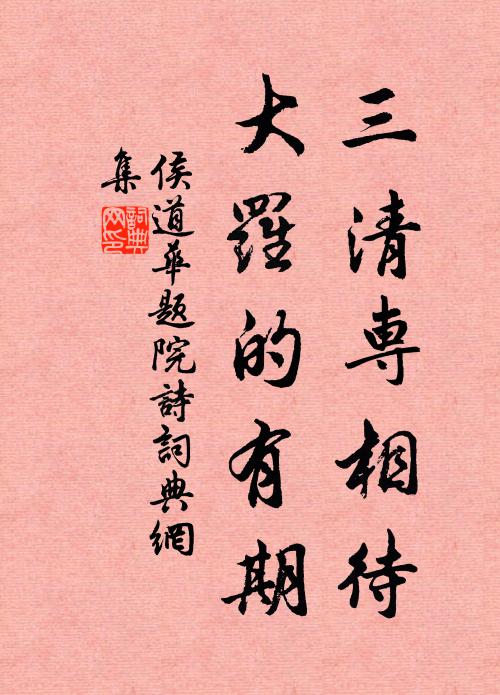 三清專相待
大羅的有期
侯道華題院詩詞典網
集
詞典
网印